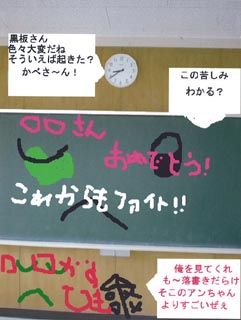 黒板さん
色々大変だね
そういえば起きた？
かべさ〜ん！
この苦しみ
わかる？
口口さん
おめでとう！
これからもファイト!!
俺を見てくれ
も〜落書きだらけ
そこのアンちゃん
よりすごいぜぇ